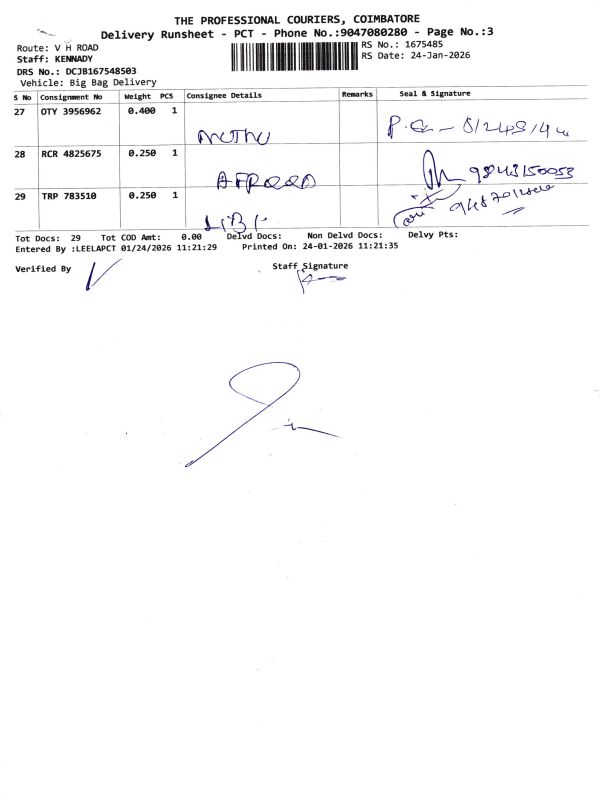 THE PROFESSIONAL COURIERS, COIMBATORE
Delivery Runsheet - PCT - Phone No.:9047080280 - Page No.:3
Route: V H ROAD
RS No.: 1675485
Staff: KENNADY
RS Date: 24-Jan-2026
DRS No.: DCJB167548503
Vehicle: Big Bag Delivery
S No Consignment No Weight PCS Consignee Details Remarks Seal & Signature
27 OTY 3956962 0.400 1
MUTHU
28 RCR 4825675 0.250 1
AFREED
29 TRP 783510 0.250 1
LIBI
Tot Docs: 29 Tot COD Amt: 0.00 Delvd Docs: Non Delvd Docs: Delvy Pts:
Entered By :LEELAPCT 01/24/2026 11:21:29 Printed On: 24-01-2026 11:21:35
Verified By
Staff Signature